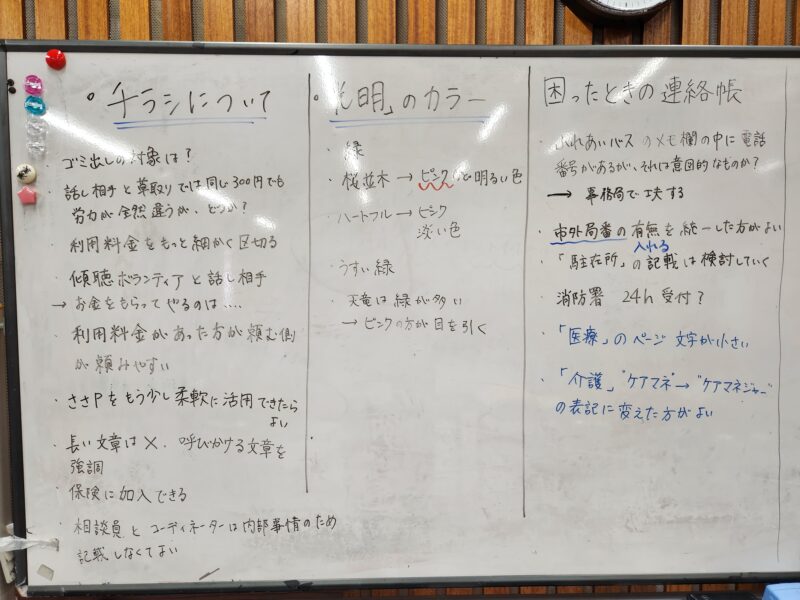 ・チラシについて
・ゴミ出しの対象は?
・話し相手と草取りでは同じ300円でも
労力が全然違うが、どうか?
・利用料金をもっと細かく区切る
・傾聴ボランティアと話し相手
→お金をもらってやるのは‥‥
・利用料金があった方が頼む側
が頼みやすい
・ささPをもう少し柔軟に活用できたら
よい
・長い文章は×. 呼びかける文章を
強調
・保険に加入できる
・相談員とコーディネーターは内部事情のため
記載しなくてよい
・光明」のカラー
・緑
・桜並木→ピンク 明るい色
・ハートフル→ピンク
淡い色
・うすい緑
・天竜は緑が多い
→ピンクの方が目を引く
困ったときの連絡帳
・ふれあいバスのメモ欄の中に電話
番号があるが、それは意図的なものか?
→事務局で工夫する
・市外局番の有無を統一した方がよい
入れる
・「駐在所」の記載は検討していく
・消防署 24h受付?
・「医療」のページ 文字が小さい
・「介護」"ケアマネ"→"ケアマネジャー"
の表記に変えた方がよい